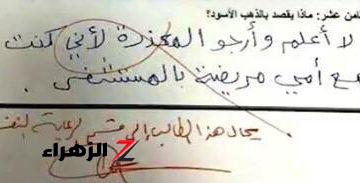 من عشر: ماذا يقصد بالذهب الأسود؟
لا أعلم وأرجو المعذرة لأنني كنت
مع أمي مريضة بالمستشفى.
يحال هذا الطالب إلى قسم الرعاية
الزهراء